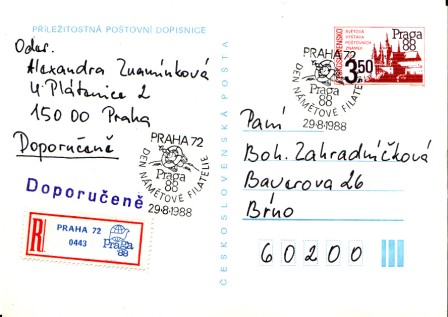 PŘÍLEŽITOSTNÁ POŠTOVNÍ DOPISNICE
Odes.
Alexandra Znamínková
U Plátenice 2
150 00 Praha
Doporučeně
Doporučeně
R
PRAHA 72
0443
Praga
'88
PRAHA 72
Praga
88
DEN NÁMĚTOVÉ FILATELIE
29-8-1988
ČESKOSLOVENSKÁ POŠTA
PRAHA 72
Praga
88
DEN NÁMĚTOVÉ FILATELIE
29-8-1988
ČESKOSLOVENSKO
SVĚTOVÁ
VÝSTAVA
POŠTOVNÍCH
ZNÁMEK
Praga
88
3,50
Paní
Boh. Zahradníčková
Bauerova 26
Brno
60200